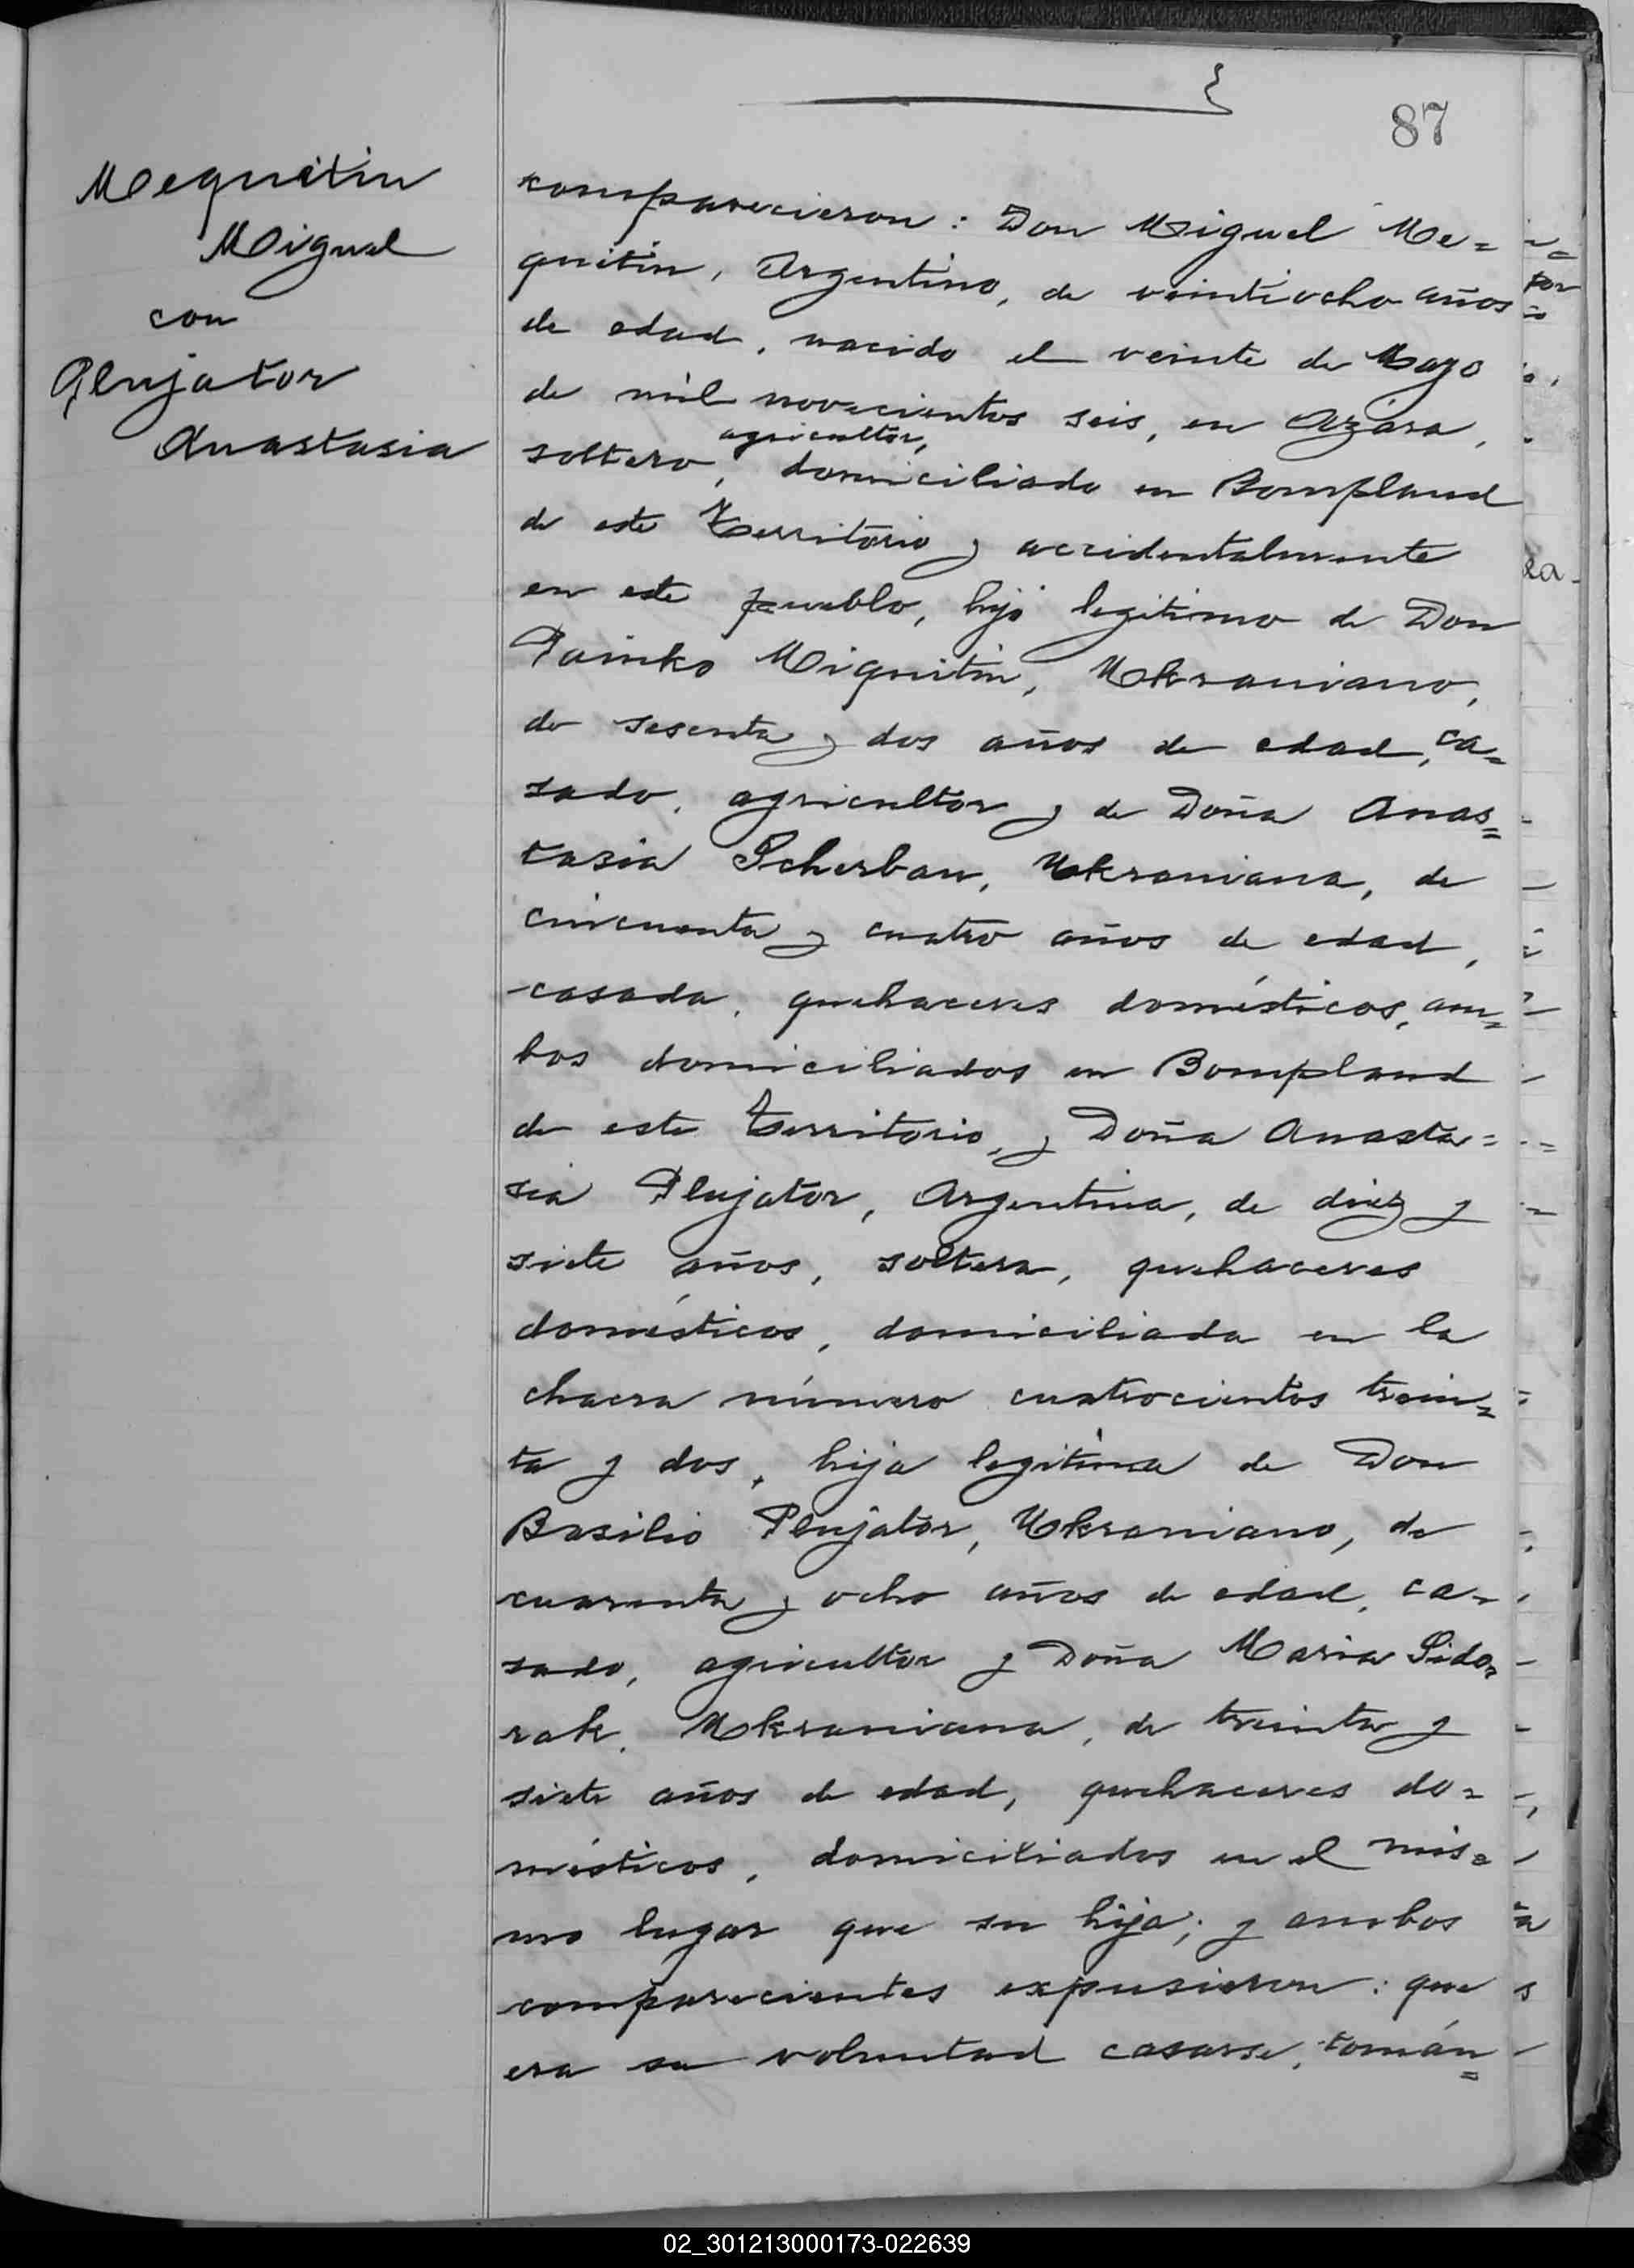 87
Mequitin
Miguel
con
Plujator
Anastasia
comparecieron: Don Miguel Me=
quitin, Argentino, de veintiocho años
de edad, nacido el veinte de Mayo
de mil novecientos seis, en Azara,
agricultor,
soltero, domiciliado en Bompland
de este Territorio y accidentalmente
en este pueblo, hijo legitimo de Don
Painko Miquitin, Ukraniano,
de sesenta y dos años de edad, ca=
sado, agricultor y de Doña Anas=
tasia Scherban, Ukraniana, de
cincuenta y cuatro años de edad,
casada, quehaceres domésticos, am=
bos domiciliados en Bompland
de este Territorio, y Doña Anasta=
sia Plujator, Argentina, de diez y
siete años, soltera, quehaceres
domésticos, domiciliada en la
chacra número cuatrocientos trein=
ta y dos, hija legitima de Don
Basilio Plujator, Ukraniano, de
cuarenta y ocho años de edad, ca-
sado, agricultor y Doña Maria Sido=
rak, Ukraniana, de treinta y
siete años de edad, quehaceres do=
mésticos, domiciliados en el mis=
mo lugar que su hija; y ambos
comparecientes expusieron: que
era su voluntad casarse, tomán=
02_301213000173-022639